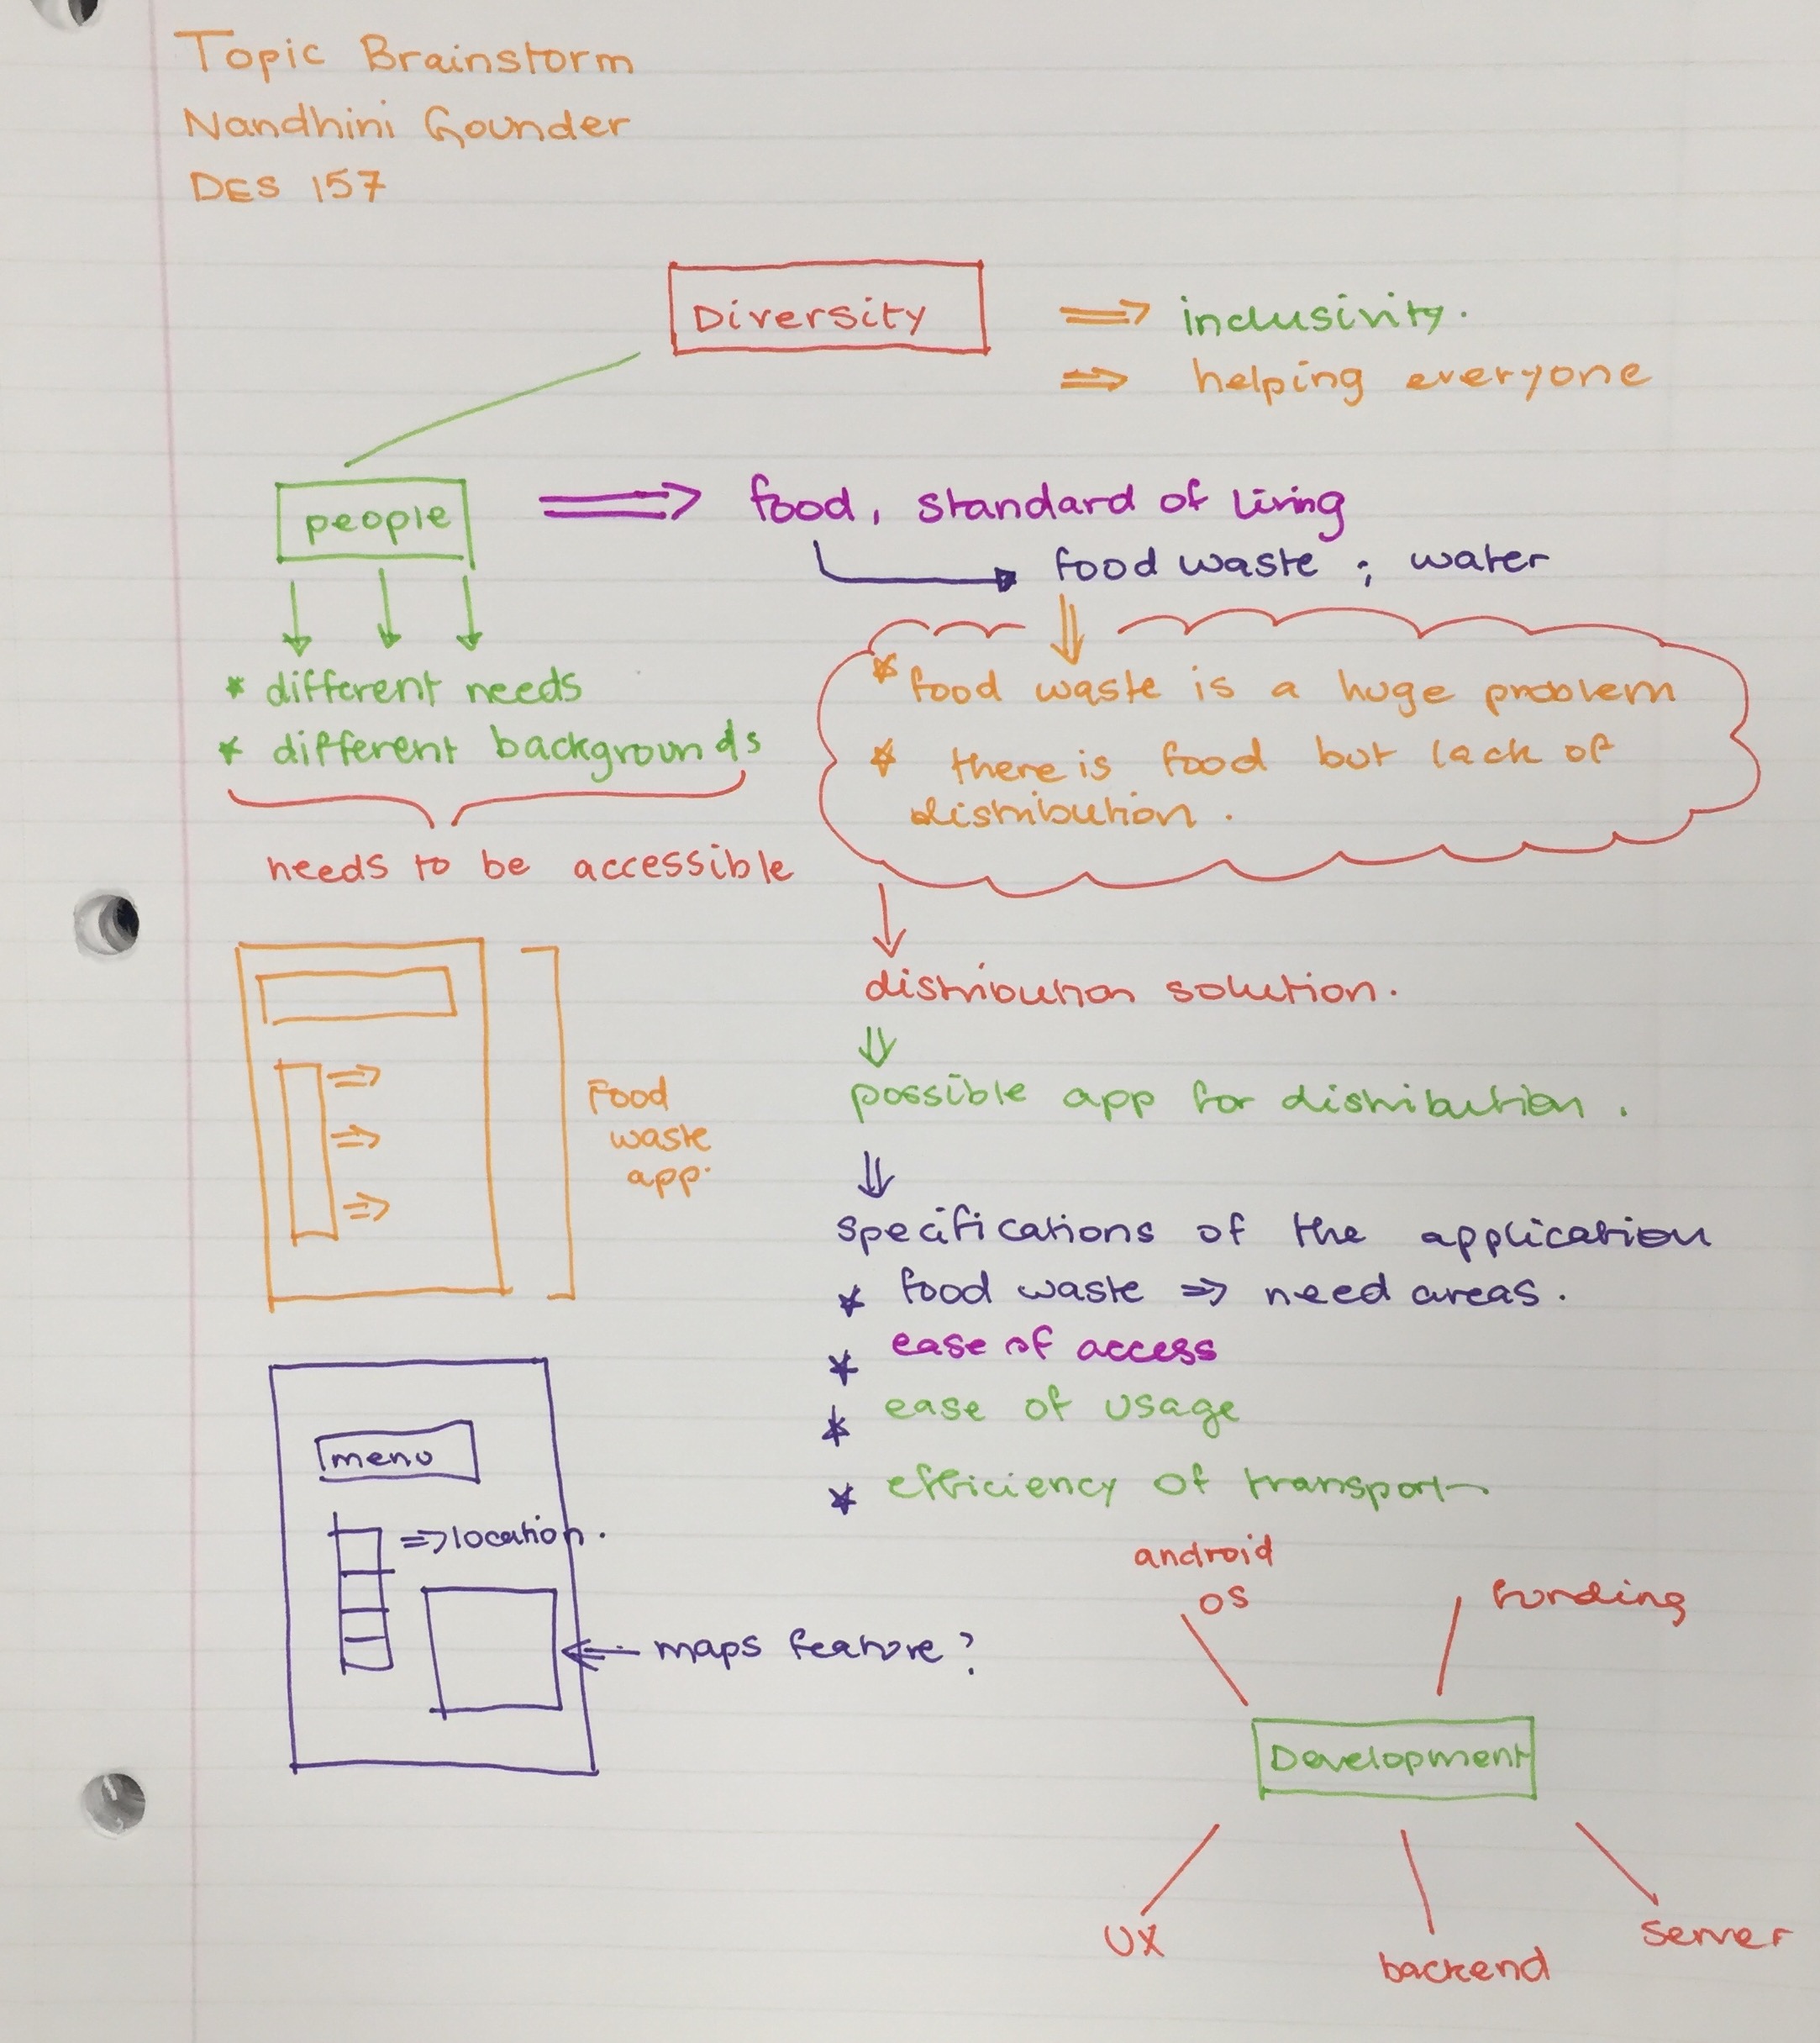 Topic Brainstorm
Nandhini Gounder
DES 157
Diversity
⇒ inclusivity.
⇒ helping everyone
people ⇒ food, standard of living
food waste ; water
* different needs
* different backgrounds
needs to be accessible
* food waste is a huge problem
* there is food but lack of
distribution.
distribution solution.
possible app for distribution.
specifications of the application
* food waste ⇒ need areas.
* ease of access
* ease of usage
* efficiency of transport
Food
waste
app.
menu
⇒ location.
maps feature?
android
OS
funding
Development
UX
backend
server